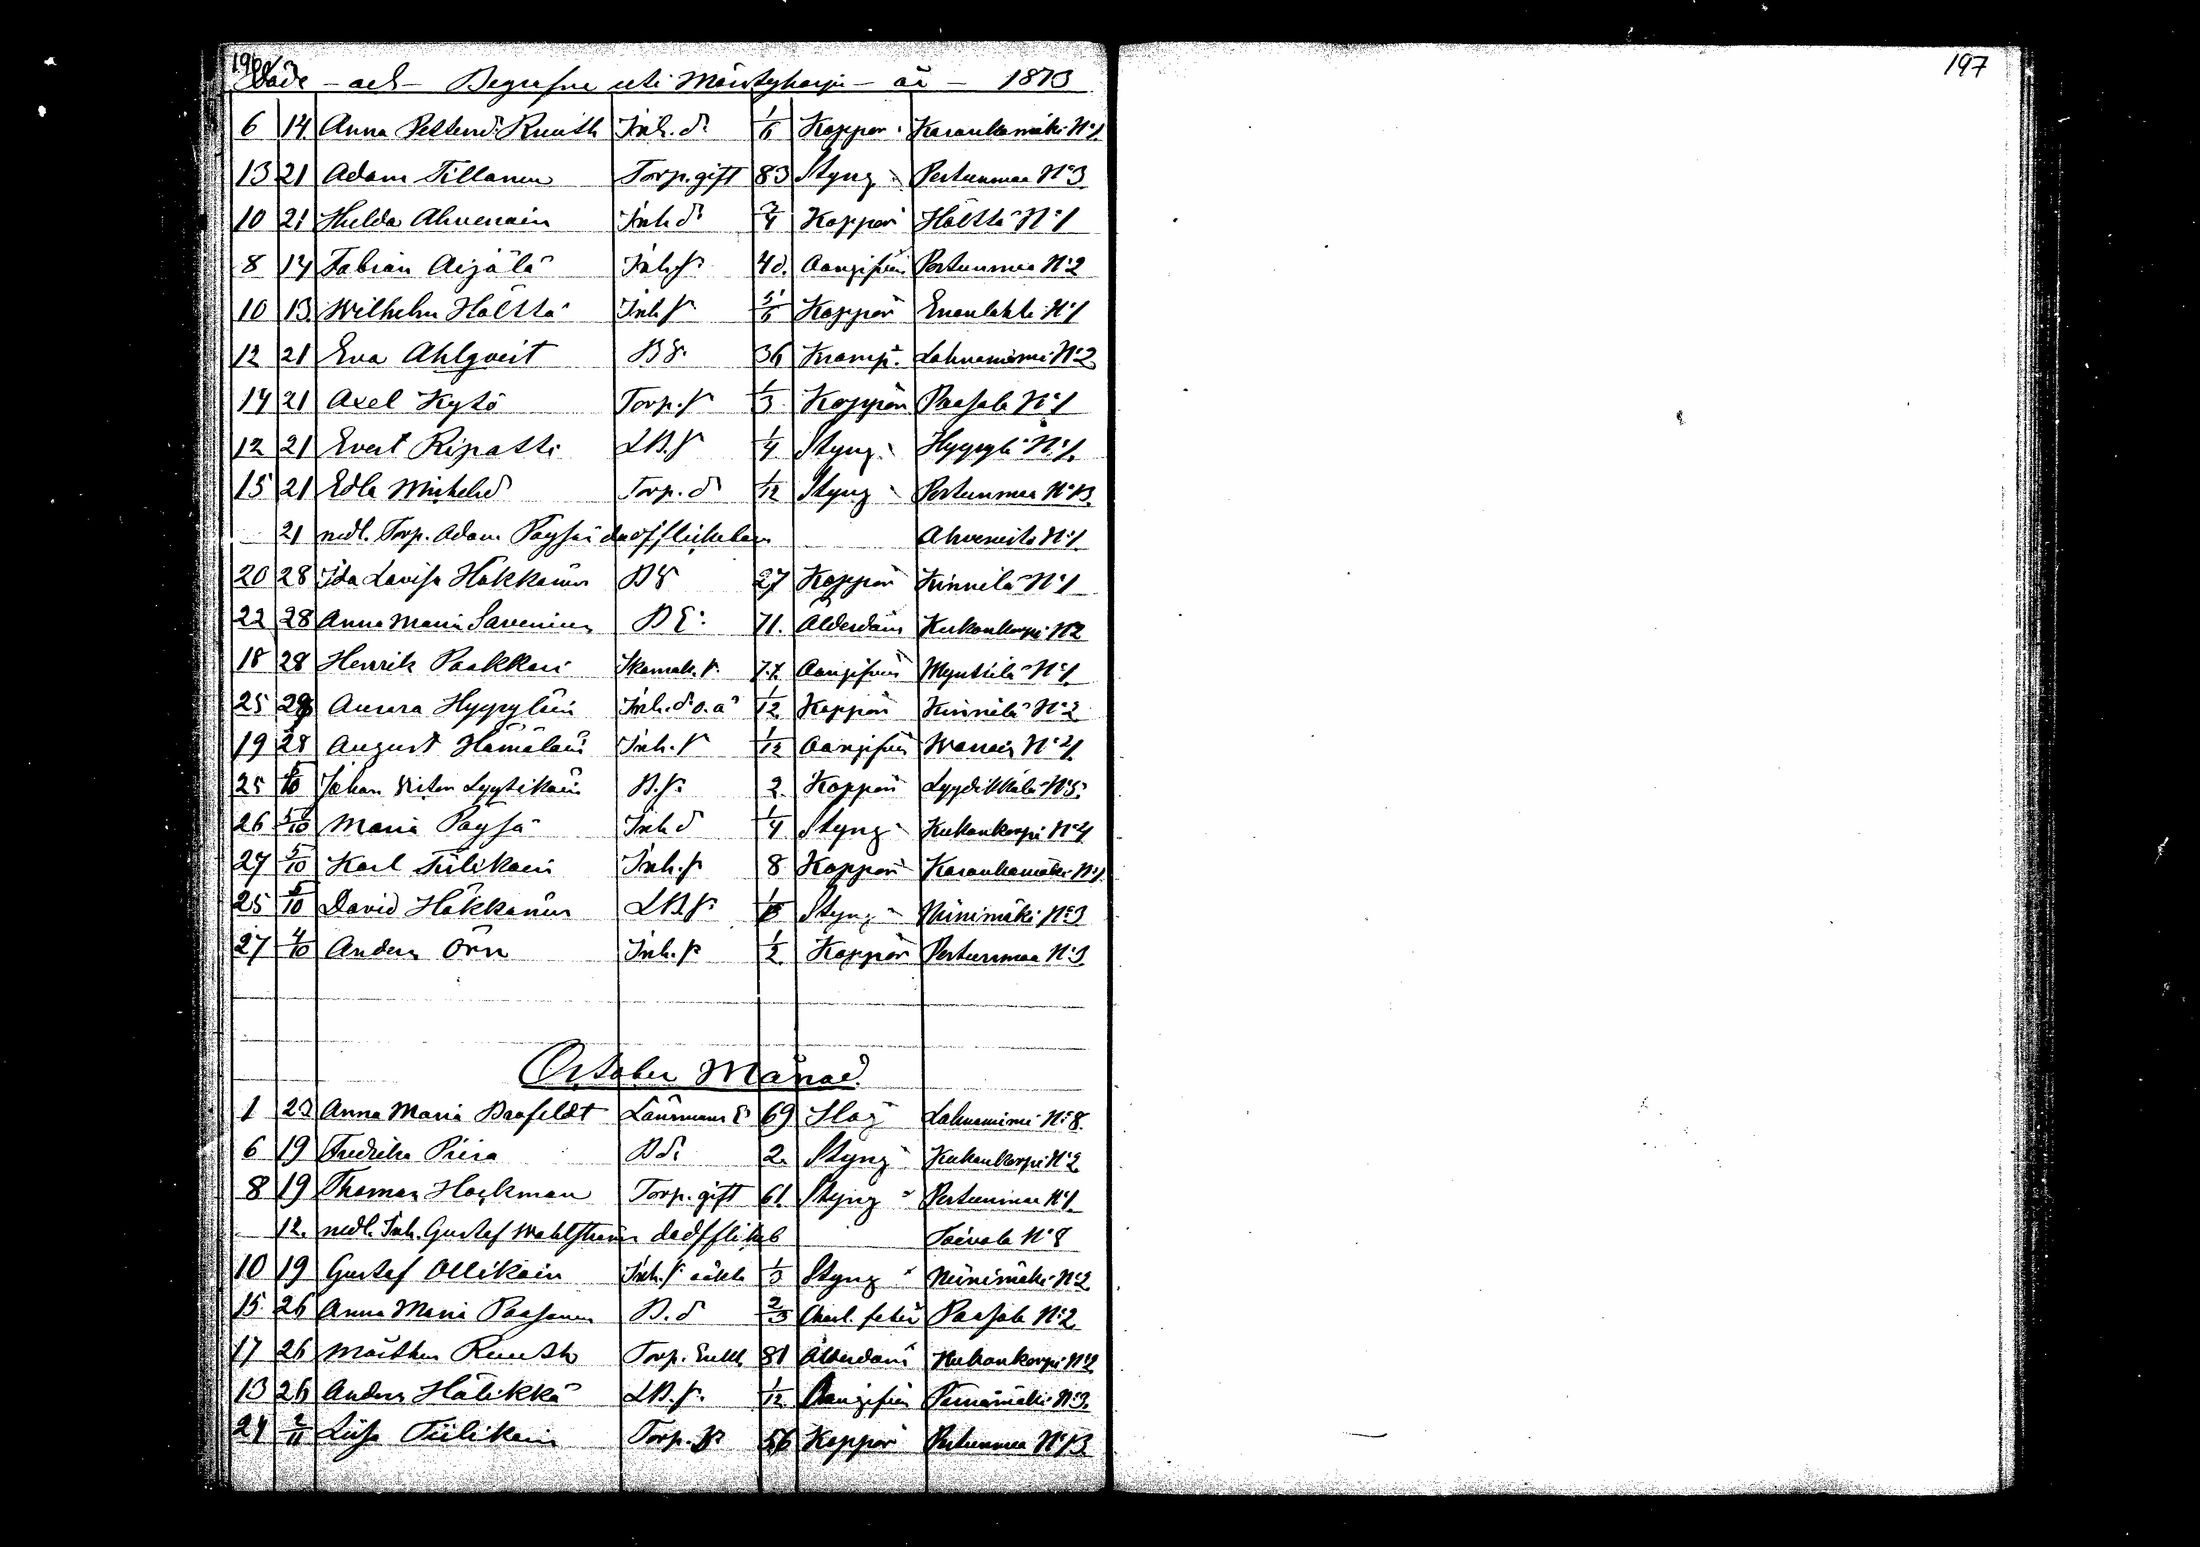 196
197
Döde – och – Begrafne uti Mäntyharju – år – 1873
6 14 Anna Pettersd. Ruuth Inh. d. 1/6 Koppor Karankamäki No 1.
13 21 Adam Tillanen Torp. gift 83 Styng Pertunmaa No 3
10 21 Hulda Ahvenain Inh d. 3/4 Koppor Hölttä No 1
8 14 Fabian Aijälä Inh. s. 4 d. Oangifven Pertunmaa No 2
10 13 Wilhelm Hölttä Inh s. 5/6 Koppor Enonlahti No 1
12 21 Eva Ahlqvist B 36 Kramp. Lahnaniemi No 2
14 21 Axel Kytö Torp. s. 1/3 Koppor Paasola No 1
12 21 Evert Ripatti LB. s. 1/4 Styng Hyyrylä No 1.
15 21 Edla Michelsd Torp. d. 1/12 Styng Pertunmaa No 13.
– 21 nedl. Torp. Adam Pöysä dödf. flickebarn Ahvenisto No 1.
20 28 Ida Lovisa Häkkänen B 27 Koppor Kinnilä No 1
22 28 Anna Maria Savenius B E. 71. Ålderdom Kuhankorpi No 2
18 28 Henrik Paakkari Skomak. s. 7 Oangifven Mynttilä No 1
25 28 Aurora Hyyryläin Inh. d. o. ä. 1/12 Koppor Kinnilä No 2
19 28 August Hämäläin Inh. s. 1/12 Oangifven No 4.
25 5/10 Johan Lyytikäin B. s. 2. Koppor Lyydikkälä No 5.
26 5/10 Maria Pöysä Inh d 1/4 Styng Kuhankorpi No 4
27 5/10 Karl Tiilikain Inh. s. 8 Koppor Karankamäki No 1.
25 5/10 David Häkkänen LB. s. Styng Niinimäki No 3
27 4/10 Anders Örn Inh. s. 1/2 Koppor Pertunmaa No 3
October Månad.
1 23 Anna Maria Brofeldt Länsmans E. 69 Slag Lahnaniemi No 8.
6 19 Fredrika Piira B d. 2. Styng Kuhankorpi No 2
8 19 Thomas Hockman Torp. gift 61. Styng Pertunmaa No 1.
– 12. nedl. Inh. Gustaf Wahlström dödf flickeb Toivola No 8
10 19 Gustaf Ollikain Inh. s. oäkta 1/3 Styng Niinimäki No 2
15. 26 Anna Maria Paasonen B. d 2/3 Paasola No 2
17 26 Matths Ruuth Torp. Enkl. 81 Ålderdom Kuhankorpi No 2
13 26 Anders Hälikkä LB. s. 1/12 Oangifven No 3.
24 2/11 Liisa Tiilikain Torp. 56 Koppor Pertunmaa No 13